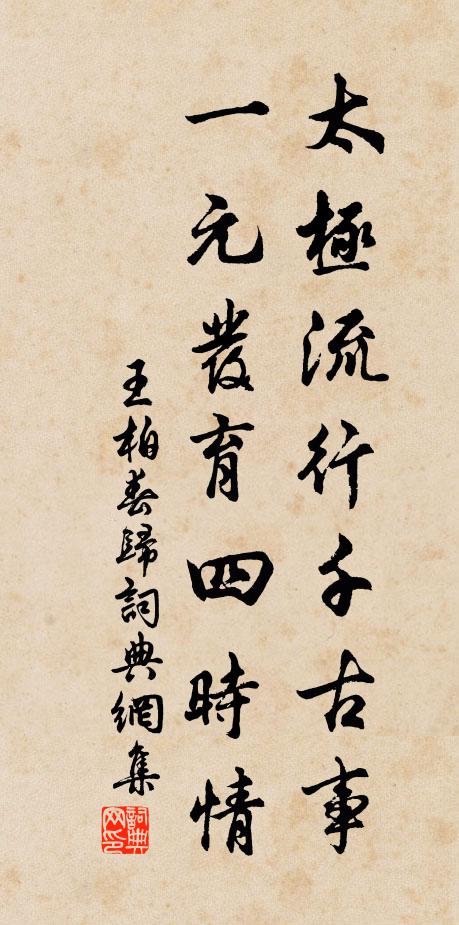 太極流行千古事
一元發育四時情
王柏春歸詞典網集
詞典网印